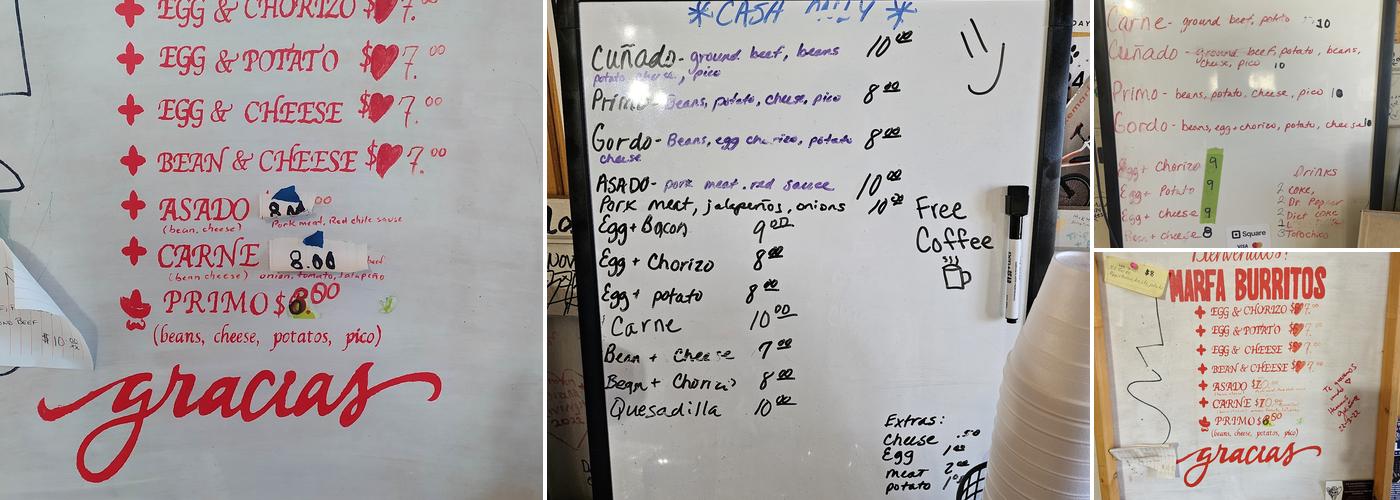 EGG & CHORIZO $ 7.
EGG & POTATO $ 7.00
EGG & CHEESE $ 7.00
BEAN & CHEESE $ 7.00
ASADO 8.00 00
(bean, cheese) Pork meat, Red chile sause
CARNE 8.00 beef
(bean cheese) onion, tomato, Jalapeño
PRIMO $8.00
(beans, cheese, potatos, pico)
gracias
BEEF
$10.00
*CASH ONLY*
Cuñado- ground beef, beans 10.00
potato, cheese, pico
Primo- Beans, potato, cheese, pico 8.00
Gordo- Beans, egg chorizo, potato 8.00
cheese
ASADO- pork meat. red sauce 10.00
Pork meat, jalapeños, onions 10.00
Egg+Bacon 9.00
Egg + Chorizo 8.00
Egg + potato 8.00
Carne 10.00
Bean + cheese 7.00
Bean + Chorizo 8.00
Quesadilla 10.00
Free
Coffee
Extras:
Cheese .50
Egg 1.00
meat 2.00
potato 1.00
Carne- ground beef, potato 10
Cuñado - ground beef, potato, beans,
cheese, pico 10
Primo- beans, potato, cheese, pico 10
Gordo- beans, egg+chorizo, potato, cheese 10
Egg + Chorizo 9
Egg + Potato 9
Egg + cheese 9
Bean + cheese 8
Drinks
2 coke,
2 Dr. Pepper
2 Diet coke
3 Topochico
Square
VISA
Bienvenido!
MARFA BURRITOS
EGG & CHORIZO $ 7.
EGG & POTATO $ 7.00
EGG & CHEESE $ 7.00
BEAN & CHEESE $ 7.00
ASADO $10.00
CARNE $10.00
PRIMO $8.50
(beans, cheese, potatos, pico)
gracias
$8